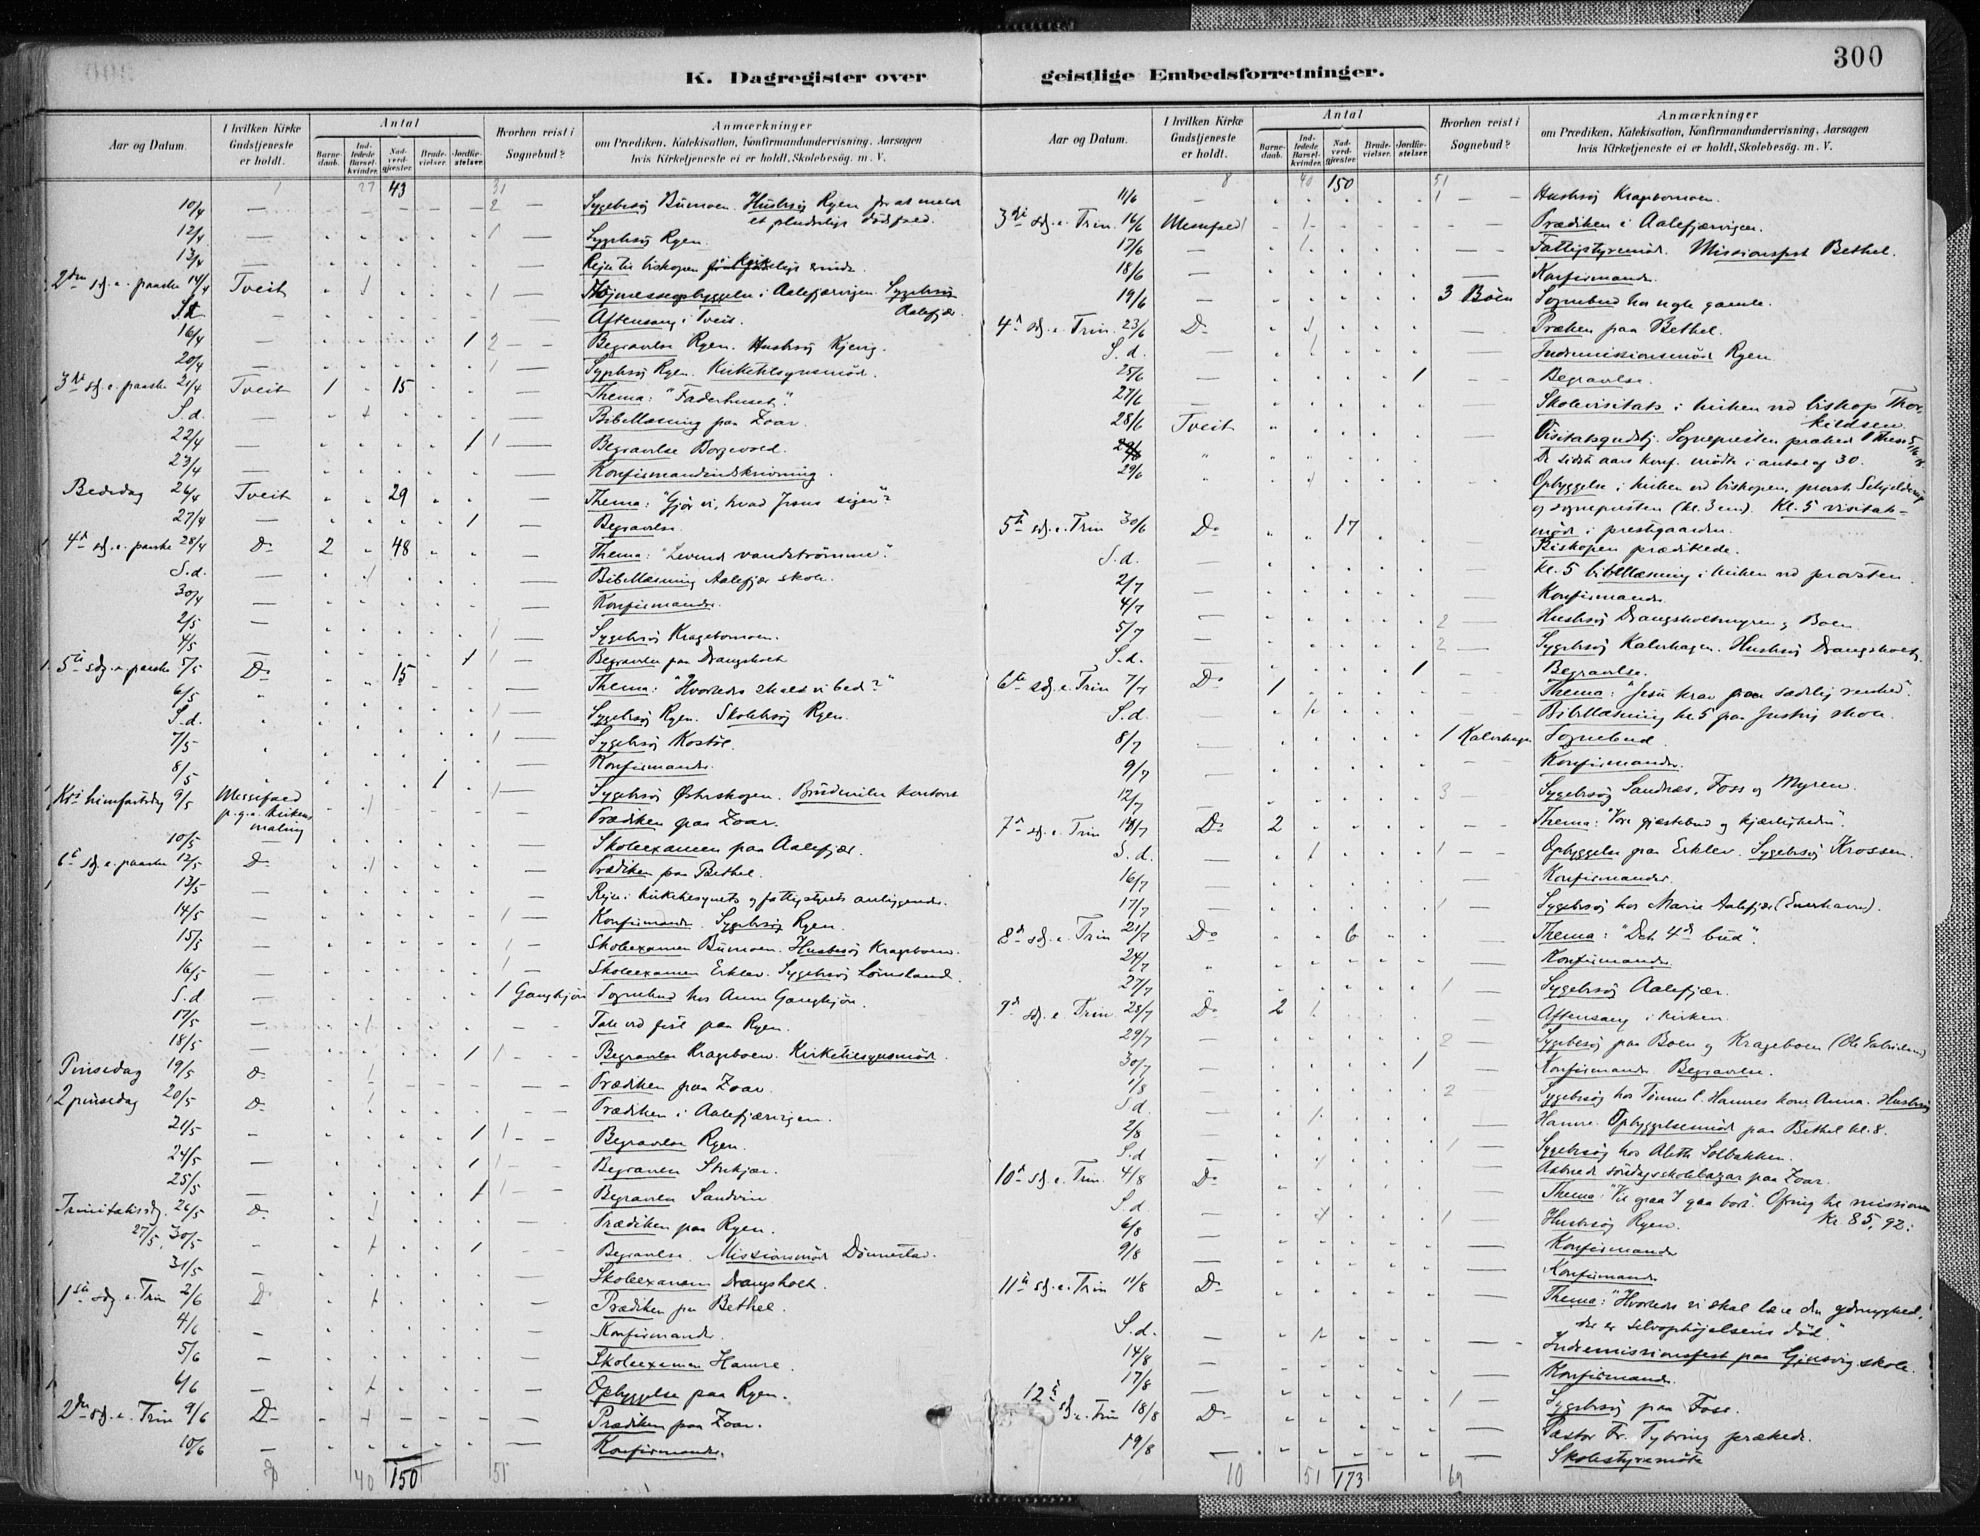 300
K. Dagregister over geistlige Embedsforretninger.
Aar og Datum.
I hvilken Kirke Gudstjeneste er holdt.
Antal
Barnedaab.
Indledede Barselkvinder.
Nadverdgjester.
Brudevielser.
Jordfæstelser.
Hvorhen reist i Sognebud?
Anmærkninger
om Prædiken, Katekisation, Konfirmandundervisning, Aarsagen
hvis Kirketjeneste ei er holdt, Skolebesög. m. V.
27 43 31
10/4 — 2 — Sygebesøg Bumoen. Husbesøg Ryen for at melde
et pludseligt dødsfald.
12/4 — 1 — Sygebesøg Ryen.
13/4 — Rejse til biskopen
2den sdg. e. paaske 14/4 Tveit 1 1 — Højmesseopbyggelse i Aalefjærvigen. Sygebesøg
Aalefjær.
S.d. — Aftensang i Tveit.
16/4 — 1 2 — Begravelse Ryen. Husbesøg Kjevig.
20/4 — 1 — Sygebesøg Ryen. Kirketilsynsmøde.
3die sdg. e. paaske 21/4 Tveit 1 15 — Thema: "Faderhuset".
S.d. — Bibellæsning paa Zoar.
22/4 — 1 1 — Begravelse Borgevold.
23/4 — Konfirmandindskrivning.
Bededag 26/4 Tveit 29 — Thema: "Gjør vi, hvad Jesus siger"?
27/4 — 1 — Begravelse.
4de sdg. e. paaske 28/4 Do 2 48 — Thema: "Levende vandstrømme".
S.d. — Bibellæsning Aalefjær skole.
30/4 — Konfirmander.
2/5 — 1 — Sygebesøg Kragebomoen.
4/5 1 — Begravelse paa Drangsholt
5te sdg. e. paaske 5/5 Do 15 — Thema: "Hvorledes skal vi bede?"
6/5 1 — Sygebesøg Ryen. Skolebesøg Ryen.
S.d. 1 — Sygebesøg Kostøl.
7/5 — Konfirmander.
8/5 1 1 — Sygebesøg Østreskogen. Brudevielse kontoret
Kri himfartsdag 9/5 Messefald
p. g. a. kirkens
maling — Prædiken paa Zoar.
10/5 — Skoleexamen paa Aalefjær.
6te sdg. e. paaske 12/5 Do — Prædiken paa Bethel.
13/5 — Rejse i kirketilsynets og fattigstyrets anliggender.
14/5 — 1 — Konfirmander. Sygebesøg Ryen.
15/5 — 1 — Skoleexamen Bumoen. Husbesøg Krageboen.
16/5 — 1 — Skoleexamen Erklev. Sygebesøg Lømsland.
S.d — 1 Gangkjøn Sognebud hos Anne Gangkjøn.
17/5 — Tale ved fest paa Ryen.
18/5 — 1 1 — Begravelse Krageboen. Kirketilsynsmøde.
Pinsedag 19/5 Do — Prædiken paa Zoar.
2 pinsedag 20/5 Do — Prædiken i Aalefjærvigen.
21/5 — 1 1 — Begravelse Ryen.
24/5 — 1 1 — Begravelse
25/5 — 1 1 — Begravelse Sandvin
Trinitatissdg. 26/5 Do — Prædiken paa Ryen.
27/5, 30/5 — 1 — Begravelse. Missionsmøde Dønnestad.
31/5 — Skoleexamen Drangsholt.
1ste sdg. e. Trin 2/6 Do — Prædiken paa Bethel.
4/6 — Konfirmander.
5/6 — Skoleexamen Hamre.
6/6 — Opbyggelse paa Ryen.
2den sdg. e. Trin 9/6 Do — Prædiken paa Zoar.
10/6 — Konfirmander.
40 150 51
Aar og Datum.
I hvilken Kirke Gudstjeneste er holdt.
Antal
Barnedaab.
Indledede Barselkvinder.
Nadverdgjester.
Brudevielser.
Jordfæstelser.
Hvorhen reist i Sognebud?
Anmærkninger
om Prædiken, Katekisation, Konfirmandundervisning, Aarsagen
hvis Kirketjeneste ei er holdt, Skolebesög. m. V.
8 40 150 51
11/6 — 1 — Husbesøg Kragebomoen.
3die sdg. e. Trin. 16/6 Messefald 1 — Prædiken i Aalefjærvigen.
17/6 — 1 — Fattigstyremøde. Missionsfest Bethel.
18/6 — Konfirmander.
19/6 — 3 Boen Sognebud hos nogle gamle.
4de sdg. e. Trin. 23/6 Do 1 — Præken paa Bethel.
S.d. — 1 — Indremissionsmøde Ryen
25/6 — 1 — Begravelse.
27/6 — Skolevisitats i kirken ved biskop Thor-
kildsen.
28/6 Tveit — Visitatsgudstj. Sognepresten præked 1 Thess 5,16-18.
29/6 De sidste aars konf. mødte i antal af 30.
29/6 Opbyggelse i kirken ved biskopen, provst Schjelderup
og sognepresten (kl. 3 em). Kl. 5 visitats-
møde i prestgaarden.
5te sdg. e. Trin 30/6 Do 17 — Biskopen prædikede.
S.d. — Kl. 5 bibellæsning i kirken ved provsten.
2/7 — Konfirmander
4/7 — 2 — Husbesøg Drangsholtmyren og Boen.
5/7 — 2 — Sygebesøg Kalvehagen. Husbesøg Drangsholt.
S.d. — 1 — Begravelse.
6te sdg. e. Trin 7/7 Do 1 — Thema: "Jesu krav paa sædelig renhed".
S.d. — Bibellæsning kl. 5 paa Justvig skole.
8/7 — 1 Kalvehagen Sognebud.
9/7 — Konfirmander.
12/7 — 3 — Sygebesøg Sandnæs, Foss og Myren.
7de sdg. e. Trin 14/7 Do 2 — Thema: "Vore gjæstebud og kjærligheden".
S.d. — 1 1 — Opbyggelse paa Erklev. Sygebesøg Krossen.
16/7 — Konfirmander.
17/7 — 1 — Sygebesøg hos Marie Aalefjær
8de sdg. e. Trin 21/7 Do 6 — Thema: "Det 4de bud".
24/7 — Konfirmander
27/7 1 — Sygebesøg Aalefjær.
9de sdg. e. Trin. 28/7 Do 2 1 — Aftensang i kirken.
29/7 — 2 — Sygebesøg paa Boen og Krageboen
30/7 1 — Konfirmander. Begravelse.
1/8 2 — Sygebesøg hos Hamres kone Anna. Husbesøg
S.d. — Hamre. Opbyggelsesmøde paa Bethel kl. 8.
2/8 — 1 — Sygebesøg hos Aleth Solbakken.
S.d — søndagsskolebazar paa Zoar.
10de sdg. e. Trin. 4/8 Do — Thema: "Vil ogsaa I gaa bort". Ofring til missionen
kr. 85,92.
S.d. — 1 — Husbesøg Ryen.
6/8 — Konfirmander
9/8 — Konfirmander
11te sdg. e. Trin 11/8 Do — Thema: "Hvorledes vi skal lære den ydmyghed,
der er selvophøjelsens død."
S.d. — Indremissionsfest paa Gjusvig skole.
14/8 — Konfirmander.
17/8 — 1 — Sygebesøg paa Foss.
12te sdg. e. Trin 18/8 Do — Pastor Fr. Tybring prækede.
19/8 — Skolestyremøte
10 51 173 69